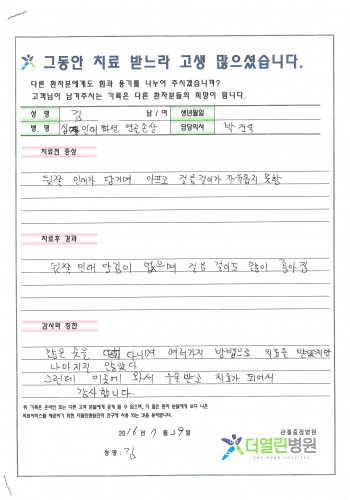 그동안 치료 받느라 고생 많으셨습니다.
다른 환자분에게도 힘과 용기를 나누어 주시겠습니까?
고객님이 남겨주시는 기록은 다른 환자분들의 희망이 됩니다.
성 명 김 남 / 여 생년월일
병 명 인대 파열 연골손상 담당의사 박
치료전 증상
뒷쪽 인대가 당기며 아프고 걸음걸이가 자유롭지 못함
치료후 경과
뒷쪽 인대 당김이 없으며 걸음 걸이도 많이 좋아짐
감사와 칭찬
많은 곳을 다니며 여러가지 방법으로 치료를 받았지만
나아지진 않았다
그런데 이곳에 와서 수술받고 치료가 되어서
감사합니다.
위 기록은 온라인 또는 다른 고객 분들에게 공개 될 수 있으며, 더 많은 환자 분들에게 보다 나은
의료서비스를 제공하기 위한 더열린병원만의 연구에 사용 되는 것을 동의합니다.
2016년 7월 29일
성명 : 김
관절중점병원
더열린병원
THE OPEN HOSPITAL